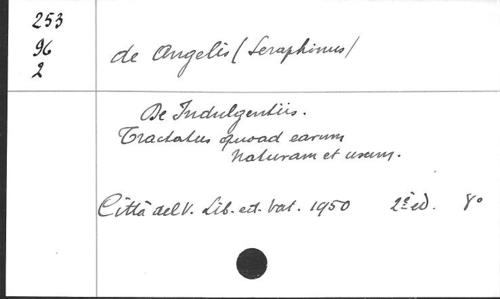 253
96
2
de Angelis (Seraphinus)
De Indulgentiis.
Tractatus quoad earum
naturam et usum.
Città del V. Lib. ed. Vat. 1950 2ª ed. 8º